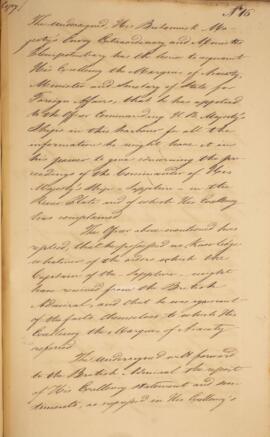 Copy.
Nº 16
The Undersigned, Her Britannick Ma-
jesty's Envoy Extraordinary and Minister
Plenipotentiary has the honor to acquaint
His Excellency the Marquis of Aracaty,
Minister and Secretary of State for
Foreign Affairs, that he has applied
to the Officer Commanding H. B. Majesty's
Ships in this harbour for all the
information he might have it in
his power to give concerning the pro-
ceedings of the Commander of His
Majesty's Ship - Sapphire - in the
River Plate and of which His Excellency
has complained.
The Officer above mentioned has
replied, that he possessed no knowledge
whatever of the orders which the
Captain of the - Sapphire - might
have received from the British
Admiral, and that he was ignorant
of the facts themselves to which His
Excellency the Marquis of Aracaty
referred.
The Undersigned will forward
to the British Admiral the report
of His Excellency's statement and sen-
timents, as expressed in His Excellency's